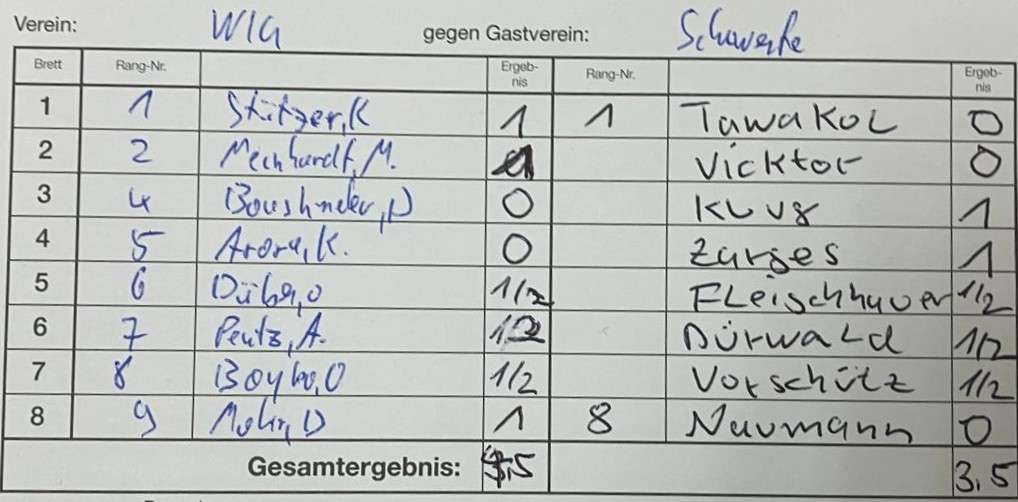 Verein: WIG gegen Gastverein: Schwerte
Brett Rang-Nr. Ergeb-nis Rang-Nr. Ergeb-nis
1 1 Stützer, K 1 1 Tawakol 0
2 2 M. 1 Vicktor 0
3 4 0 Klug 1
4 5 Arora, K. 0 Zarges 1
5 6 1/2 Fleischhauer 1/2
6 7 Peutz, A. 1/2 Dürwald 1/2
7 8 Boyko, O 1/2 Vorschütz 1/2
8 9 Mohr, D 1 8 Naumann 0
Gesamtergebnis: 4,5 3,5